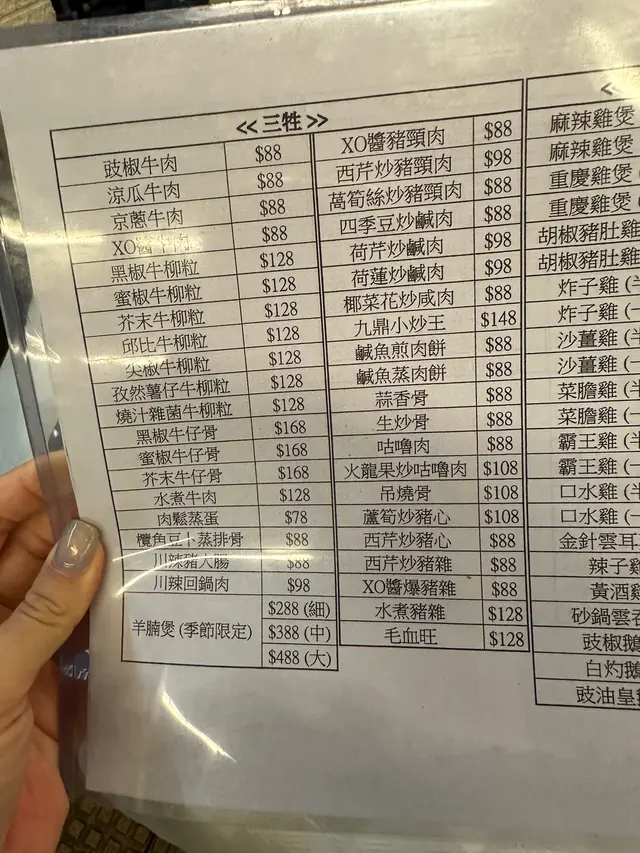 << 三牲 >>
豉椒牛肉 $88
涼瓜牛肉 $88
京蔥牛肉 $88
XO醬牛肉 $88
黑椒牛柳粒 $128
蜜椒牛柳粒 $128
芥末牛柳粒 $128
邱比牛柳粒 $128
尖椒牛柳粒 $128
孜然薯仔牛柳粒 $128
燒汁雜菌牛柳粒 $128
黑椒牛仔骨 $168
蜜椒牛仔骨 $168
芥末牛仔骨 $168
水煮牛肉 $128
肉鬆蒸蛋 $78
欖角豆卜蒸排骨 $88
川辣豬大腸 $88
川辣回鍋肉 $98
羊腩煲 (季節限定) $288 (細)
$388 (中)
$488 (大)
XO醬豬頸肉 $88
西芹炒豬頸肉 $98
萵筍絲炒豬頸肉 $88
四季豆炒鹹肉 $88
荷芹炒鹹肉 $98
荷蓮炒鹹肉 $98
椰菜花炒咸肉 $88
九鼎小炒王 $148
鹹魚煎肉餅 $88
鹹魚蒸肉餅 $88
蒜香骨 $88
生炒骨 $88
咕嚕肉 $88
火龍果炒咕嚕肉 $108
吊燒骨 $108
蘆筍炒豬心 $108
西芹炒豬心 $88
西芹炒豬雜 $88
XO醬爆豬雜 $88
水煮豬雜 $128
毛血旺 $128
<
麻辣雞煲
麻辣雞煲
重慶雞煲
重慶雞煲 (
胡椒豬肚雞
胡椒豬肚雞
炸子雞 (半
炸子雞 (一
沙薑雞 (半
沙薑雞 (一
菜膽雞 (半
菜膽雞 (一
霸王雞 (半
霸王雞 (一
口水雞 (半
口水雞 (一
金針雲耳
辣子雞
黃酒雞
砂鍋雲吞
豉椒鵝
白灼鵝
豉油皇鵝